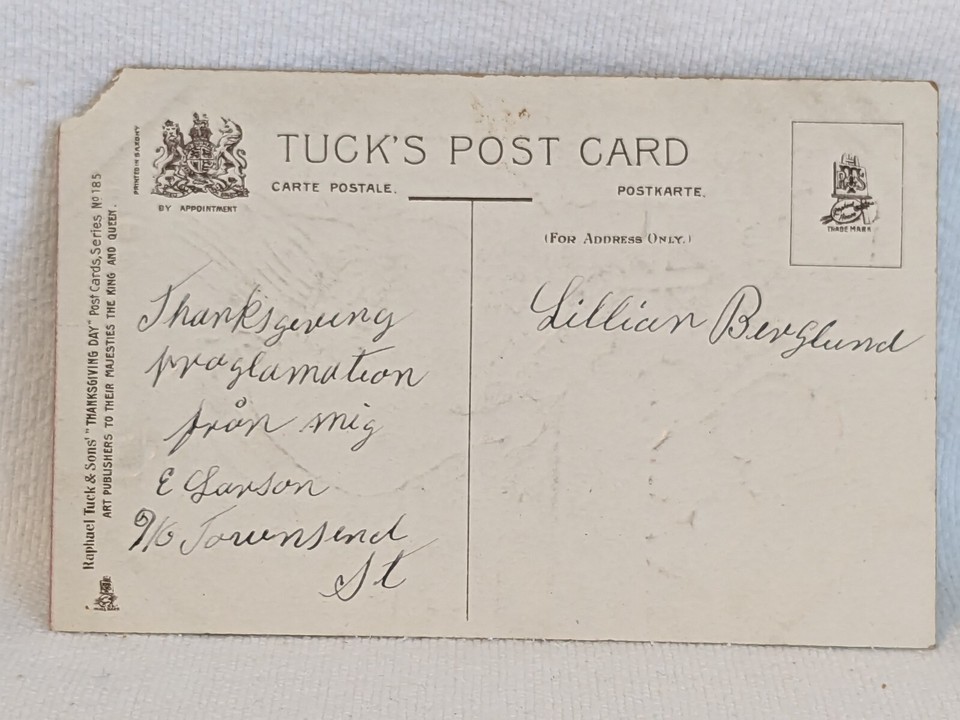 TUCK'S POST CARD
CARTE POSTALE.
POSTKARTE.
(FOR ADDRESS ONLY.)
PRINTED IN SAXONY
BY APPOINTMENT
TRADE MARK
Raphael Tuck & Sons' "THANKSGIVING DAY" Post Cards, Series Nº 185
ART PUBLISHERS TO THEIR MAJESTIES THE KING AND QUEEN.
Thanksgeving
proglamation
från mig
E Larson
916 Townsend
St
Lillian Berglund